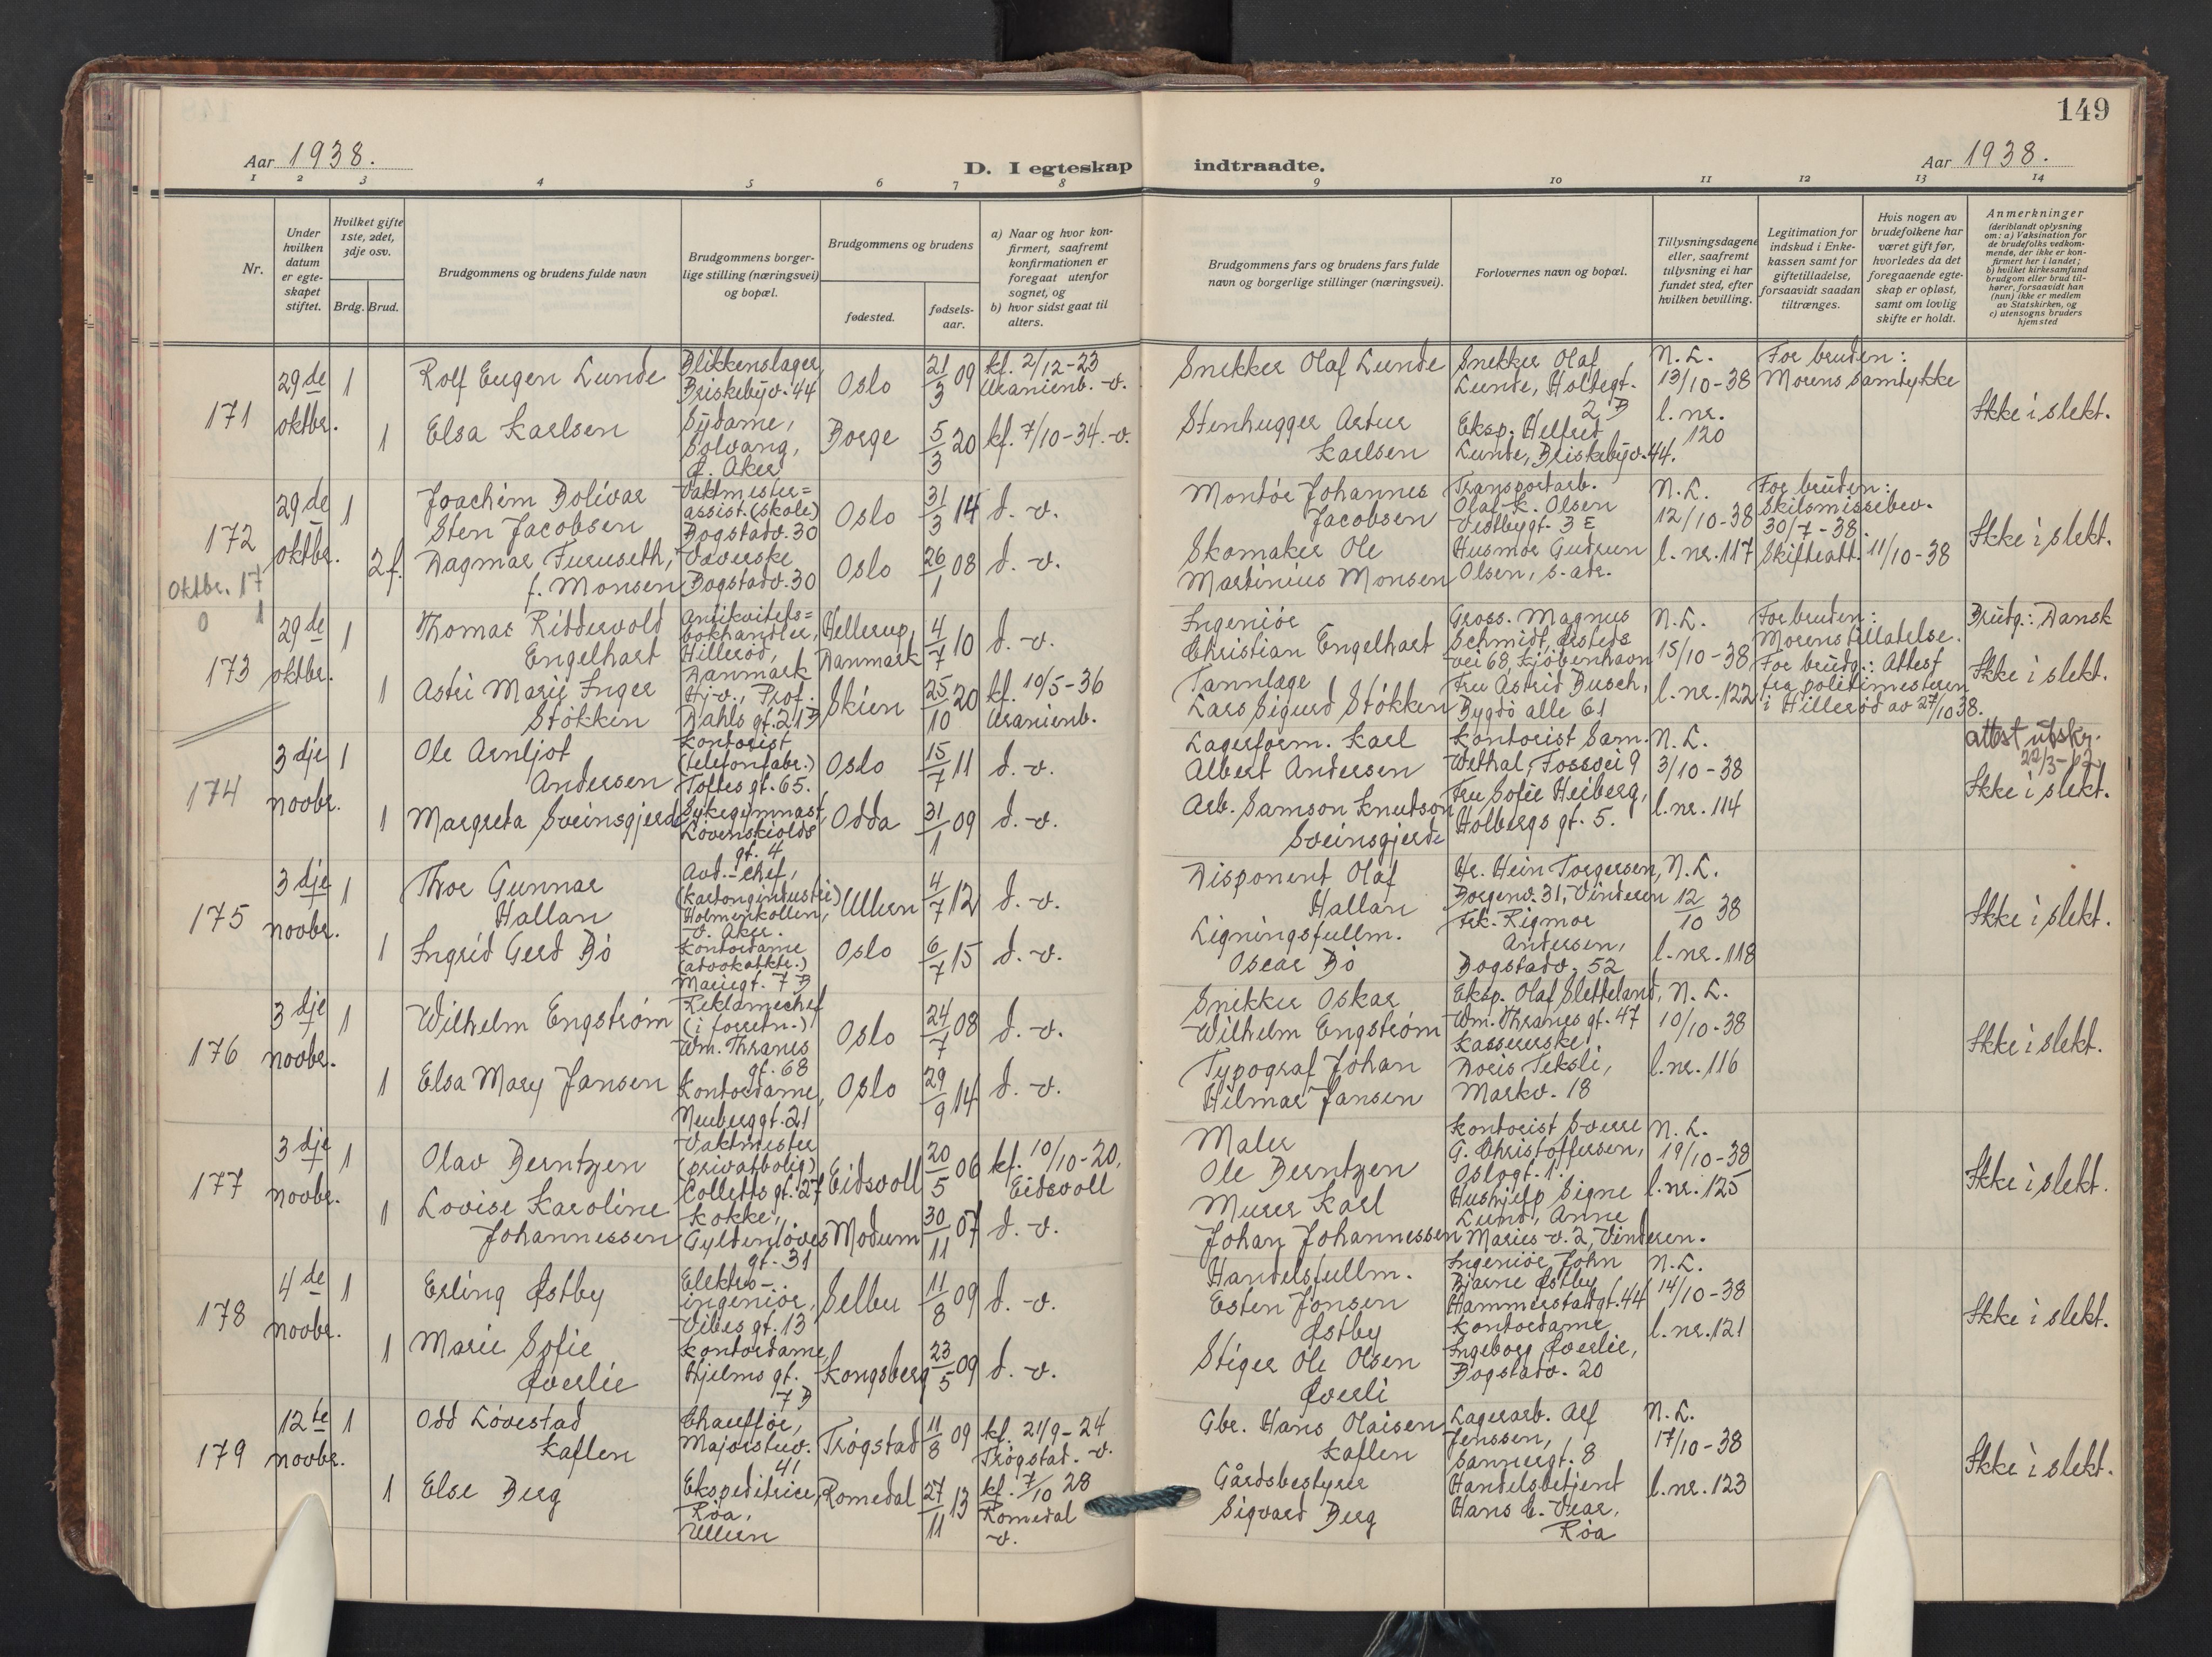 149
Aar 1938.
D. I egteskap indtraadte.
Aar 1938.
1 2 3 4 5 6 7 8 9 10 11 12 13 14
Nr.
Under hvilken datum er egteskapet stiftet.
Hvilket gifte 1ste, 2det, 3dje osv.
Brdg. Brud.
Brudgommens og brudens fulde navn
Brudgommens borgerlige stilling (næringsvei) og bopæl.
Brudgommens og brudens
fødested.
fødselsaar.
a) Naar og hvor konfirmert, saafremt konfirmationen er foregaat utenfor sognet, og
b) hvor sidst gaat til alters.
Brudgommens fars og brudens fars fulde navn og borgerlige stillinger (næringsvei).
Forlovernes navn og bopæl.
Tillysningsdagene eller, saafremt tillysning ei har fundet sted, efter hvilken bevilling.
Legitimation for indskud i Enkekassen samt for giftetilladelse, forsaavidt saadan tiltrænges.
Hvis nogen av brudefolkene har været gift før, hvorledes da det foregaaende egteskap er opløst, samt om lovlig skifte er holdt.
Anmerkninger (deriblandt oplysning om: a) Vaksination for de brudefolks vedkommende, der ikke er konfirmert her i landet; b) hvilket kirkesamfund brudgom eller brud tilhører, forsaavidt han (hun) ikke er medlem av Statskirken, og c) utensogns bruders hjemsted
171
29de oktbr.
1 Rolf Eugen Lunde
Blikkenslager, Briskebyv. 44
Oslo
21/3 09
kf. 2/12-23 Uranienb. -v.
Snekker Olaf Lunde
Snekker Olaf Lunde, Holtegt. 2 B
N.L. 13/10-38
l.nr. 120
For bruden: Morens samtykke
Ikke i slekt.
1 Elsa Karlsen
Sydame, Solvang, Ø. Aker
Borge
5/3 20
kf. 7/10-34. -v.
Stenhugger Artur Karlsen
Eksp. Helfrid Lunde, Briskebyv. 44.
172
29de oktbr.
1 Joachim Bolivar Sten Jacobsen
Vaktmester= assist. (skole) Bogstadv. 30
Oslo
31/3 14
d. -v.
Montør Johannes Jacobsen
Transportarb. Olaf K. Olsen Vestbygt. 3 E
N.L. 12/10-38
l.nr. 117
For bruden: Skilsmissebev. 30/7-38.
Skifteatt. 11/10-38
Ikke i slekt.
2 f. Dagmar Furuseth, f. Monsen
Vaverske Bogstadv. 30
Oslo
26/1 08
d. -v.
Skomaker Ole Martinius Monsen
Husmor Gudrun Olsen, s. adr.
Oktbr. 17
0 1
173
29de oktbr.
1 Thomas Riddervold Engelhart
Antikvitets= bokhandler, Hillerød, Danmark
Hellerup, Danmark
4/7 10
d. -v.
Ingeniør Christian Engelhart
Gross. Magnus Schmidt, Ørsteds vei 68, Kjøbenhavn
N.L. 15/10-38
l.nr. 122
For bruden: Morens tillatelse.
For brudg.: Attest fra politimesteren i Hillerød av 27/10 38.
Brudg.: Dansk
Ikke i slekt.
1 Astri Marie Inger Støkken
Hj.v., Prof. Dahls gt. 21 B
Skien
25/10 20
kf. 10/5-36 Uranienb.
Tannlæge Lars Sigurd Støkken
Fru Astrid Busch, Bygdø alle 61
174
3dje novbr.
1 Ole Arnljot Andersen
Kontorist (telefonfabr.) Toftes gt. 65.
Oslo
15/7 11
d. -v.
Lagerform. Karl Albert Andersen
Kontorist Sam. Wethal, Fossvei 9
N.L. 3/10-38
l.nr. 114
attest utskr. 22/3-
Ikke i slekt.
1 Margreta Sveinsgjerde
Sykegymnast, Løvenskiolds gt. 4
Odda
31/1 09
d. -v.
Arb. Samson Knutson Sveinsgjerde
Fru Sofie Heiberg, Holbergs gt. 5.
175
3dje novbr.
1 Thor Gunnar Hallan
Avd.-chef, (kartongindustri) Holmenkollen, V. Aker.
Ullern
4/7 12
d. -v.
Disponent Olaf Hallan
Hr. Hein Torgersen, Borgenv. 31, Vinderen
N.L. 12/10 38
l.nr. 118
Ikke i slekt.
1 Ingrid Gerd Bø
Kontordame (advokatktr.) Mariegt. 7 B
Oslo
6/7 15
d. -v.
Ligningsfullm. Oscar Bø
Frk. Rigmor Andersen, Bogstadv. 52
176
3dje novbr.
1 Wilhelm Engstrøm
Reklamechef (i forretn.) Wm. Thranes gt. 68
Oslo
24/7 08
d. -v.
Snekker Oskar Wilhelm Engstrøm
Eksp. Olaf Sletteland, Wm. Thranes gt. 47
N.L. 10/10-38
l.nr. 116
Ikke i slekt.
1 Elsa Mary Jansen
Kontordame, Neuberggt. 21
Oslo
29/9 14
d. -v.
Typograf Johan Hilmar Jansen
Kassererske Doris Teksli, Markv. 18
177
3dje novbr.
1 Olav Berntzen
Vaktmester (privatbolig) Colletts gt. 27
Eidsvoll
20/5 06
kf. 10/10-20, Eidsvoll
Maler Ole Berntzen
Kontorist Sverre G. Christoffersen, Oslogt. 1.
N.L. 19/10-38
l.nr. 125
Ikke i slekt.
1 Lovise Karoline Johannessen
Kokke, Gyldenløves gt. 31
Modum
30/11 07
d. -v.
Murer Karl Johan Johannessen
Hushjelp Signe Lund, Anne Maries v. 2, Vinderen.
178
4de novbr.
1 Erling Østby
Elektro-ingeniør, Vibes gt. 13
Selbu
11/8 09
d. -v.
Handelsfullm. Esten Jonsen Østby
Ingeniør John Bjarne Østby Hammerstadgt. 44
N.L. 14/10-38
l.nr. 121
Ikke i slekt.
1 Marie Sofie Øverlie
Kontordame, Hjelms gt. 7 B
Kongsberg
23/5 09
d. -v.
Stiger Ole Olsen Øverli
Kontordame Ingeborg Øverlie, Bogstadv. 20
179
12te novbr.
1 Odd Løvestad Kaflen
Chauffør, Majorstuv. 41
Trøgstad
11/8 09
kf. 21/9-24 Trøgstad. -v.
Gbr. Hans Olaisen Kaflen
Lagerarb. Alf Jenssen, Sannergt. 8
N.L. 17/10-38
l.nr. 123
Ikke i slekt.
1 Else Berg
Ekspeditrice, Røa, Ullern
Romedal
27/11 13
kf. 7/10 28 Romedal -v.
Gårdsbestyrer Sigvard Berg
Handelsbetjent Hans C. Vear, Røa